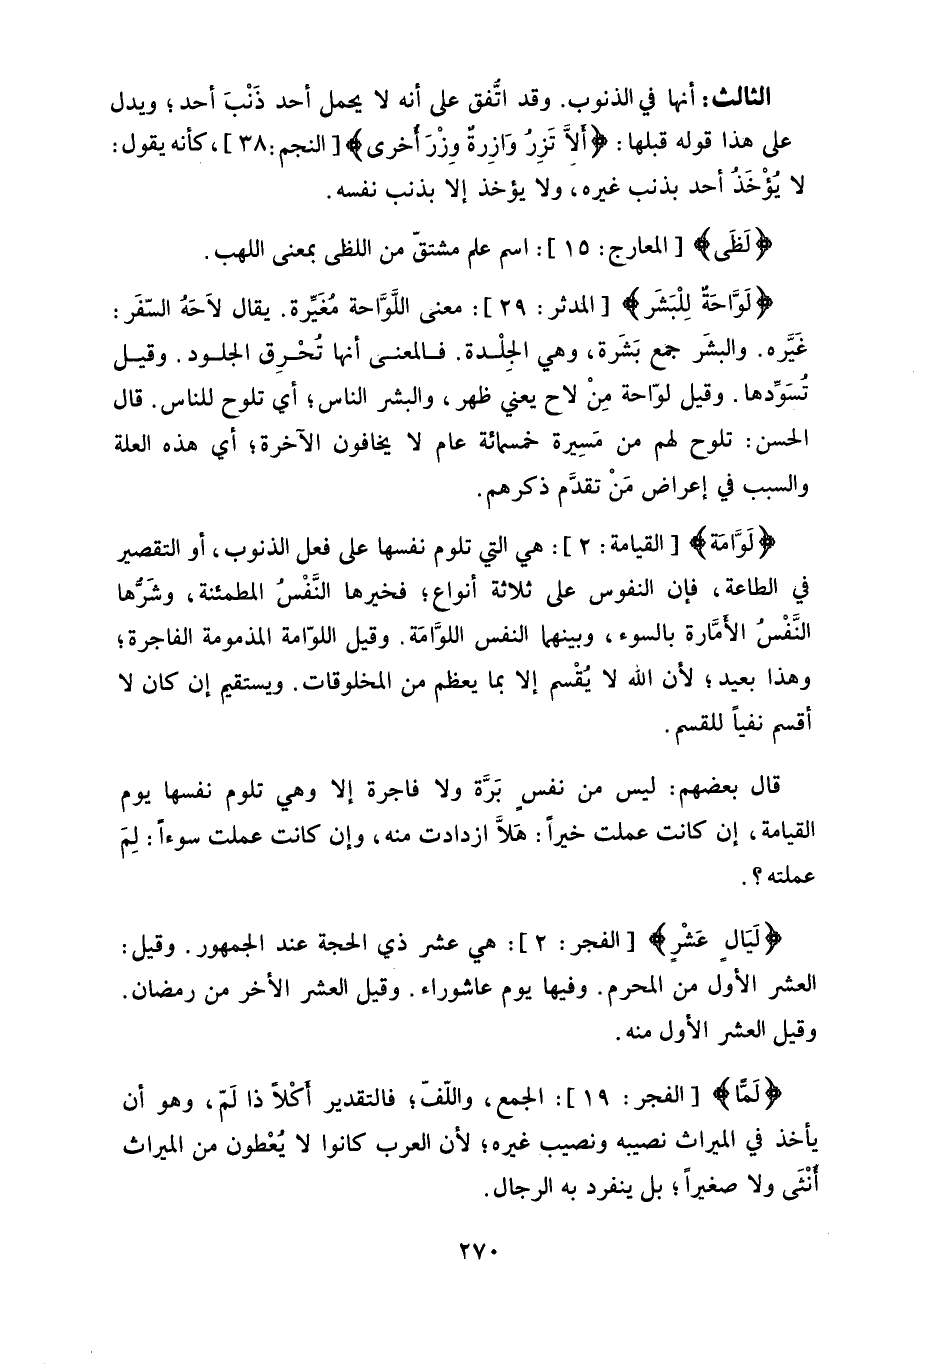 الثالث: أنها في الذنوب. وقد اتُّفق على أنه لا يحمل أحد ذَنْبَ أحد؛ ويدل
على هذا قوله قبلها: ﴿أَلاَّ تَزِرُ وَازِرةٌ وِزْرَ أُخرى﴾ [النجم: ٣٨]، كأنه يقول:
لا يُؤْخَذُ أحد بذنب غيره، ولا يؤخذ إلا بذنب نفسه.
﴿لَظَى﴾ [المعارج: ١٥]: اسم علم مشتقّ من اللظى بمعنى اللهب.
﴿لَوَّاحَةٌ لِلْبَشَر﴾ [المدثر: ٢٩]: معنى اللَّوَّاحة مُغَيِّرة. يقال لاَحَهُ السّفَر:
غَيَّره. والبشَر جمع بَشَرة، وهي الجِلْدة. فالمعنى أنها تُحْرِق الجلود. وقيل
تُسَوِّدها. وقيل لوّاحة مِنْ لاح يعني ظهر، والبشر الناس؛ أي تلوح للناس. قال
الحسن: تلوح لهم من مَسِيرة خمسمائة عام لا يخافون الآخرة؛ أي هذه العلة
والسبب في إعراض مَنْ تقدَّم ذكرهم.
﴿لَوَّامَة﴾ [القيامة: ٢]: هي التي تلوم نفسها على فعل الذنوب، أو التقصير
في الطاعة، فإن النفوس على ثلاثة أنواع؛ فخيرها النَّفْسُ المطمئنة، وشَرُّها
النَّفْسُ الأَمَّارة بالسوء، وبينهما النفس اللوَّامَة. وقيل اللوّامة المذمومة الفاجرة؛
وهذا بعيد؛ لأن الله لا يُقْسم إلا بما يعظم من المخلوقات. ويستقيم إن كان لا
أقسم نفياً للقسم.
قال بعضهم: ليس من نفسٍ بَرَّة ولا فاجرة إلا وهي تلوم نفسها يوم
القيامة، إن كانت عملت خيراً: هَلاَّ ازدادت منه، وإن كانت عملت سوءاً: لِمَ
عملته؟.
﴿لَيَالٍ عَشْرٍ﴾ [الفجر: ٢]: هي عشر ذي الحجة عند الجمهور. وقيل:
العشر الأول من المحرم. وفيها يوم عاشوراء. وقيل العشر الأخر من رمضان.
وقيل العشر الأول منه.
﴿لَمًّا﴾ [الفجر: ١٩]: الجمع، واللّفّ؛ فالتقدير أَكْلاً ذا لَمّ، وهو أن
يأخذ في الميراث نصيبه ونصيب غيره؛ لأن العرب كانوا لا يُعْطون من الميراث
أُنْثَى ولا صغيراً؛ بل ينفرد به الرجال.
٢٧٠